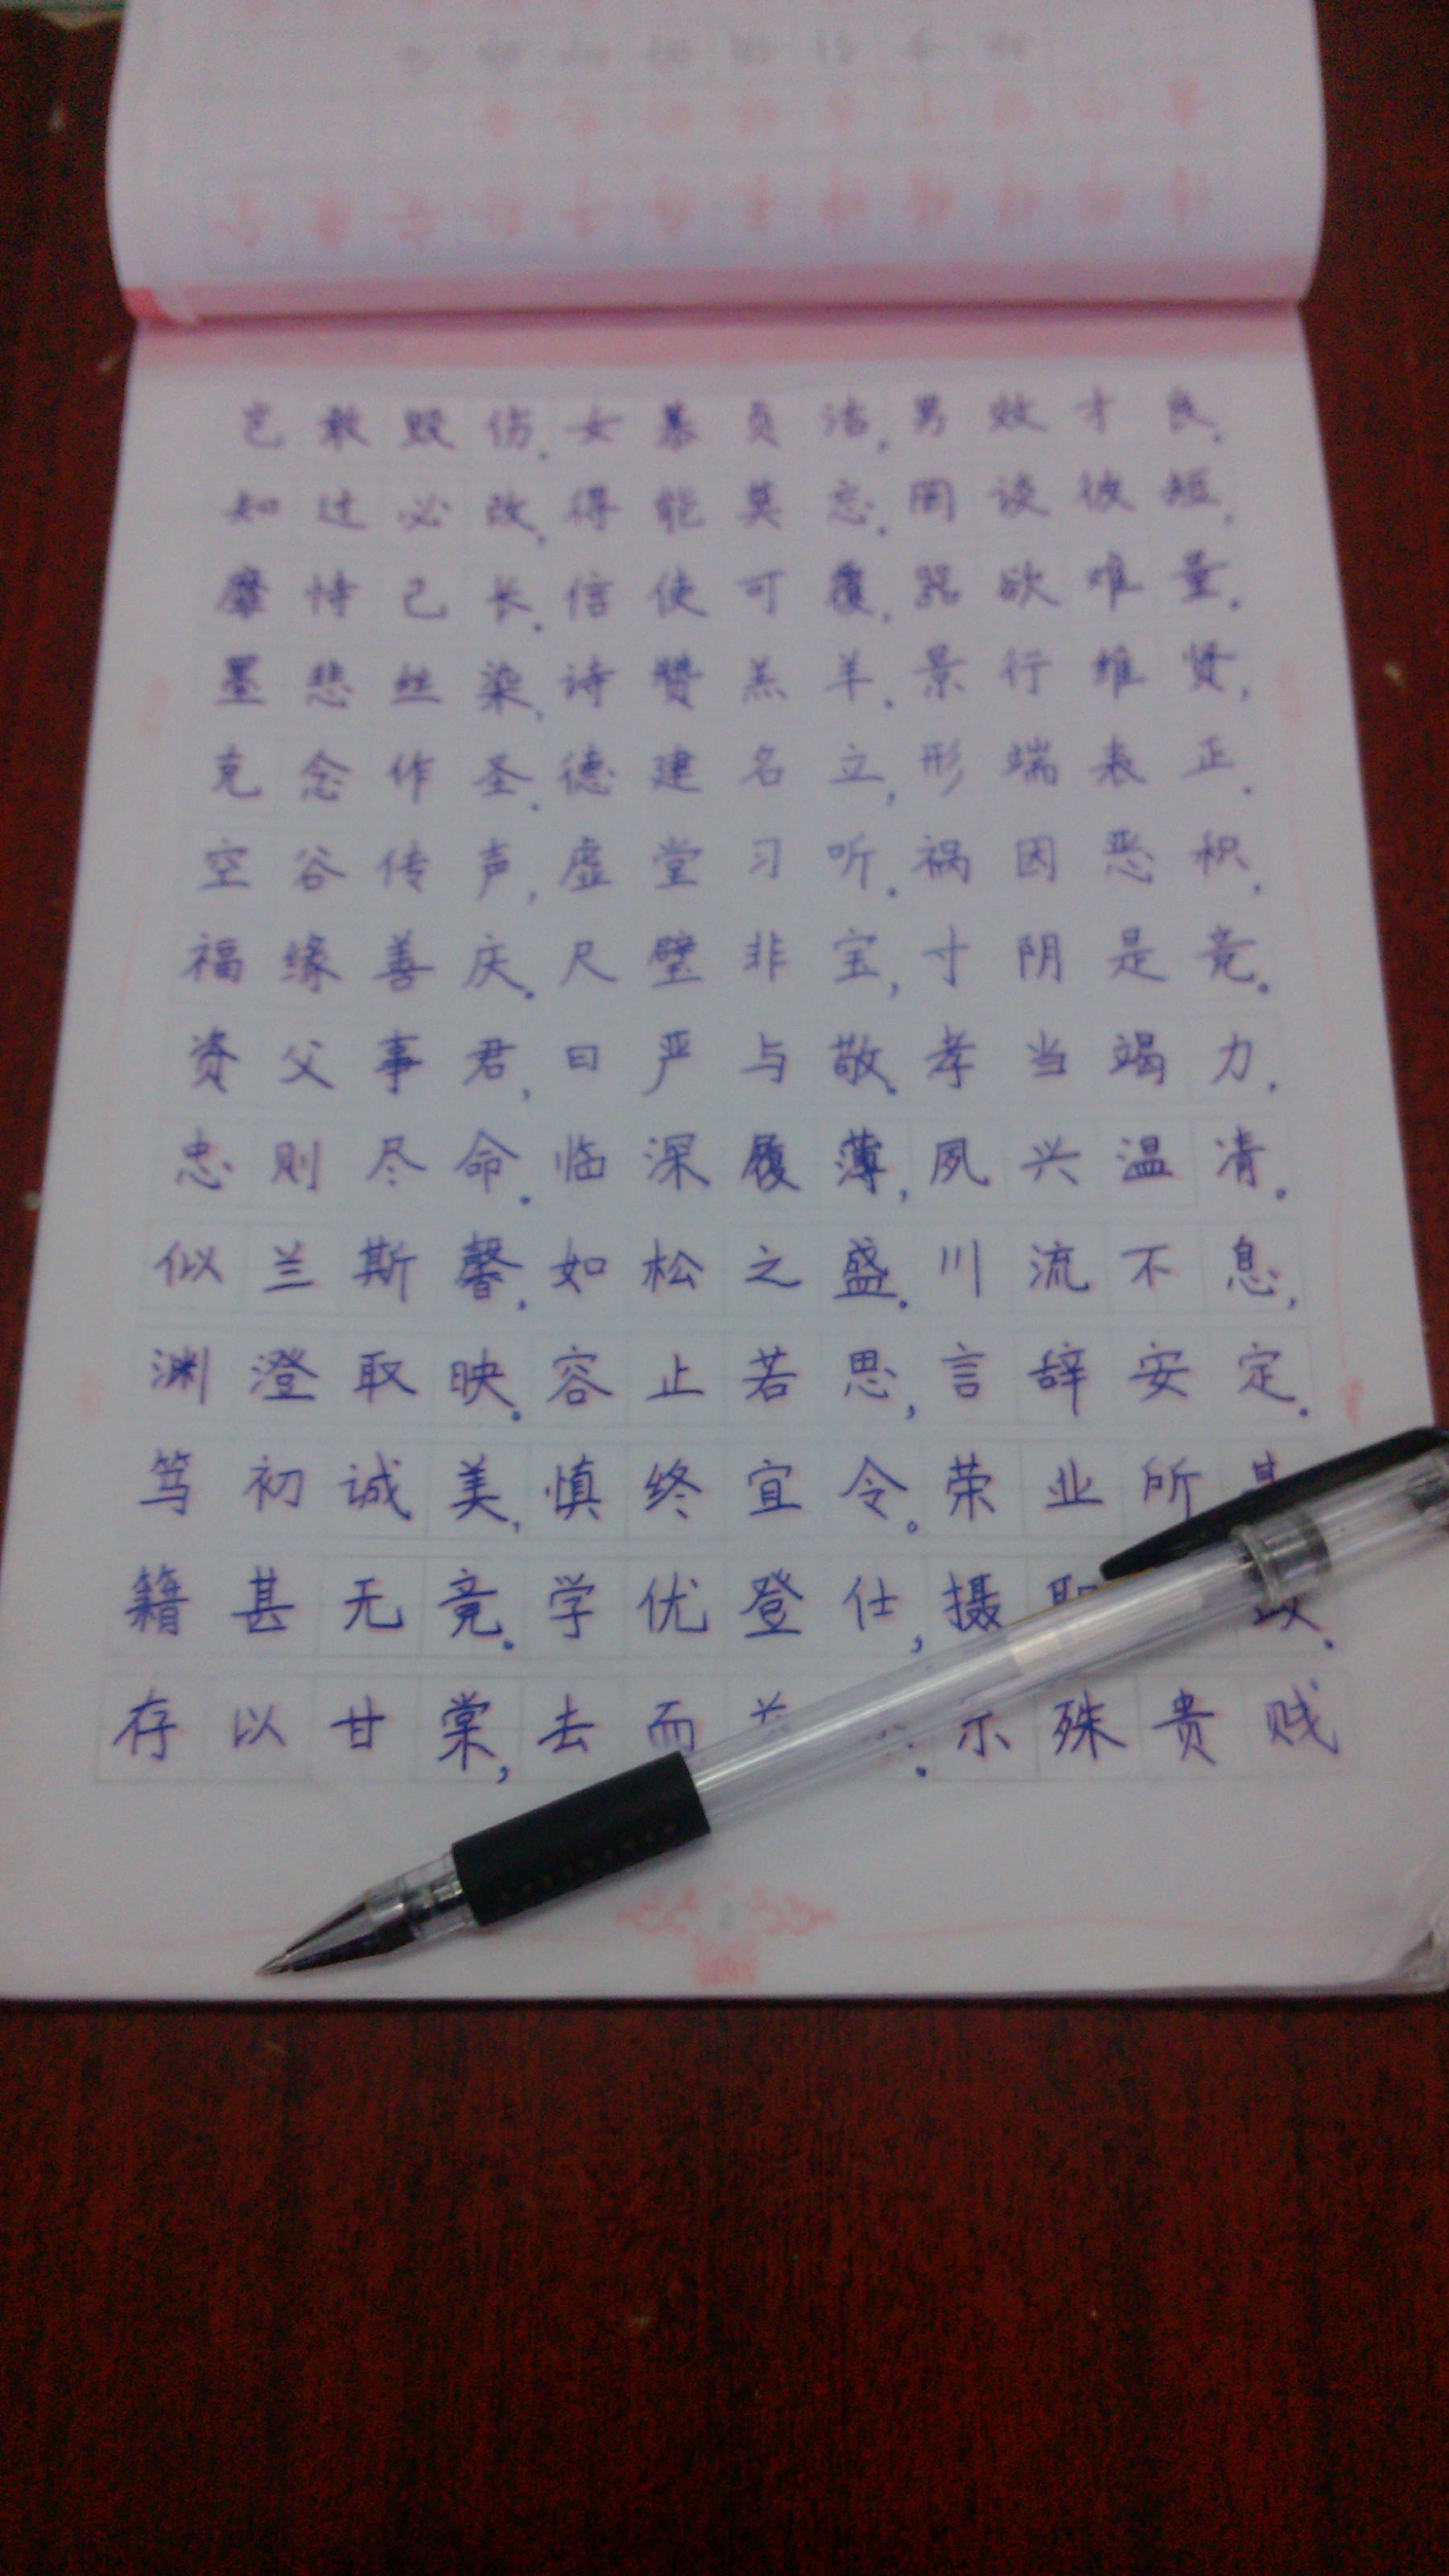 岂敢毁伤.女慕贞洁,男效才良.
知过必改,得能莫忘.罔谈彼短,
靡恃己长.信使可覆,器欲难量.
墨悲丝染,诗赞羔羊.景行维贤,
克念作圣.德建名立,形端表正.
空谷传声,虚堂习听.祸因恶积,
福缘善庆.尺璧非宝,寸阴是竞.
资父事君,曰严与敬.孝当竭力.
忠则尽命.临深履薄,夙兴温凊.
似兰斯馨,如松之盛.川流不息,
渊澄取映.容止若思,言辞安定.
笃初诚美,慎终宜令.荣业所
籍甚无竟.学优登仕,摄
存以甘棠,去而 殊贵贱